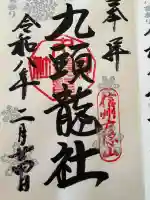 奉拝
九頭龍社
令和八年二月廿四日
信州戸隠山